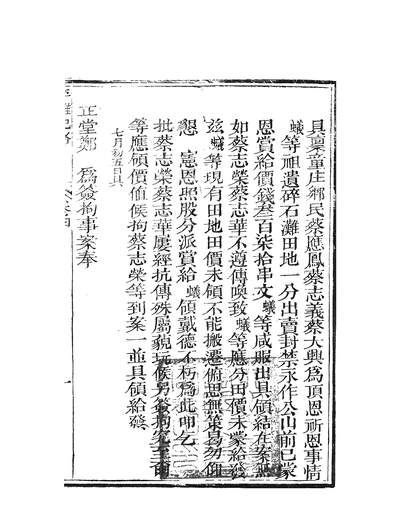 具稟童庄鄉民蔡應鳳蔡志義蔡大興為頂恩祈恩事情
蟻等祖遺碎石灘田地一分出賣封禁永作公山前已蒙
恩賞給價錢叁百柒拾串文蟻等咸服出具領結在案照
如蔡志榮蔡志華不遵傳喚致蟻等應分田價未蒙給發
茲蟻等現有田地田價未領不能搬遷俯思無策爲仰
懇 憲恩照股分派賞給蟻領戴德不朽爲此叩乞
批蔡志榮蔡志華屢經抗傳殊屬藐玩候另簽拘究至爾
等應領價值候拘蔡志榮等到案一並具領給發
七月初五日具
正堂鄭 爲簽拘事案奉